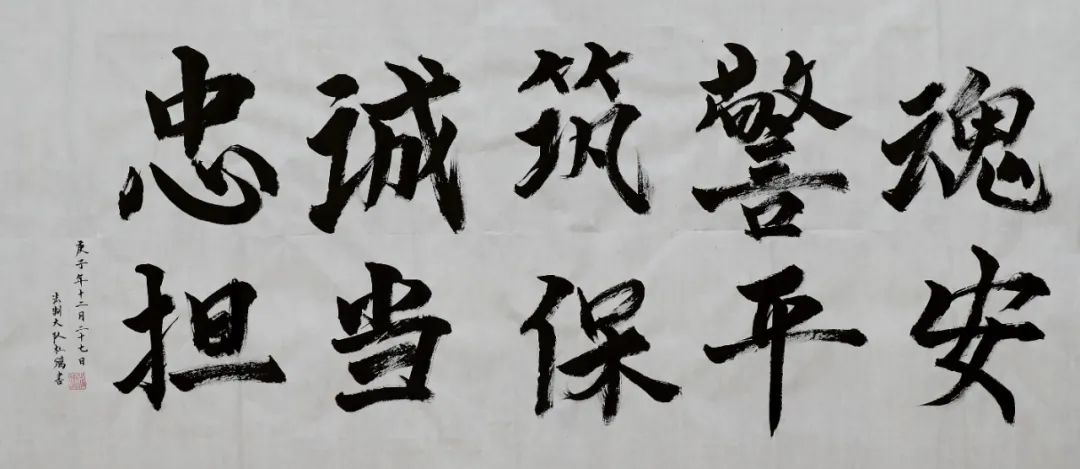 忠诚筑警魂
担当保平安
庚子年十二月二十七日
法制大队
书